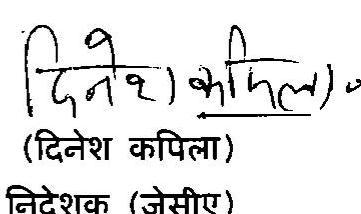 दिनेश कपिला
(दिनेश कपिला)
निदेशक (जेसीए)